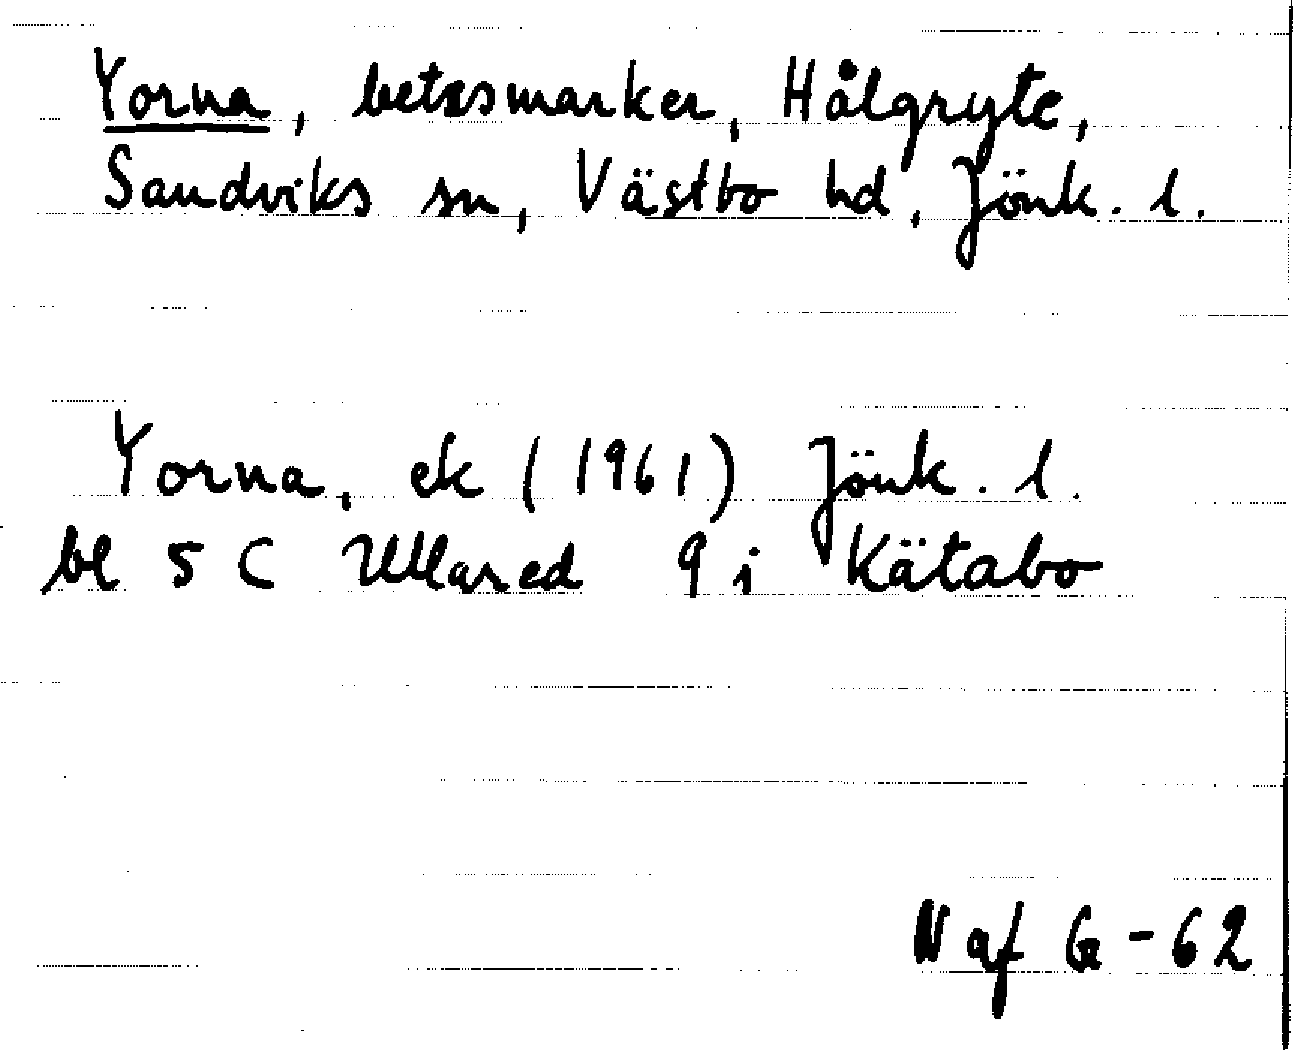 Yorna, betesmarker, Hålgryte,
Sandviks sn, Västbo hd, Jönk. l.
Yorna, ek (1961) Jönk. l.
bl 5 C Ullared 9 i Kätabo
N af G - 62